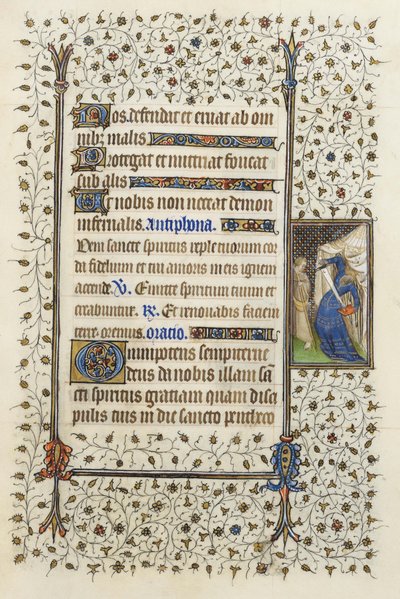 Nos defendat et eruat ab om
nibz malis
Protegat et nutriat foveat
sub alis
Et nobis non noceat demon
infernalis. Antiphona.
Veni sancte spiritus reple tuorum cor
da fidelium et tui amoris in eis ignem
accende. V. Emitte spiritum tuum et
creabuntur. R. Et renovabis faciem
terre. oremus. oratio.
Omnipotens sempiterne
deus da nobis illam sā
cti spiritus gratiam quam disci
pulis tuis in die sancto